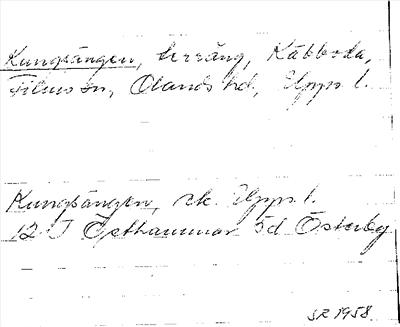 Kungsängen, terräng, Kabboda,
Films sn, Olands hd, Upps. l.
Kungsängen, ek. Upps. l.
12 I Östhammar 5d Österby
SR 1958.